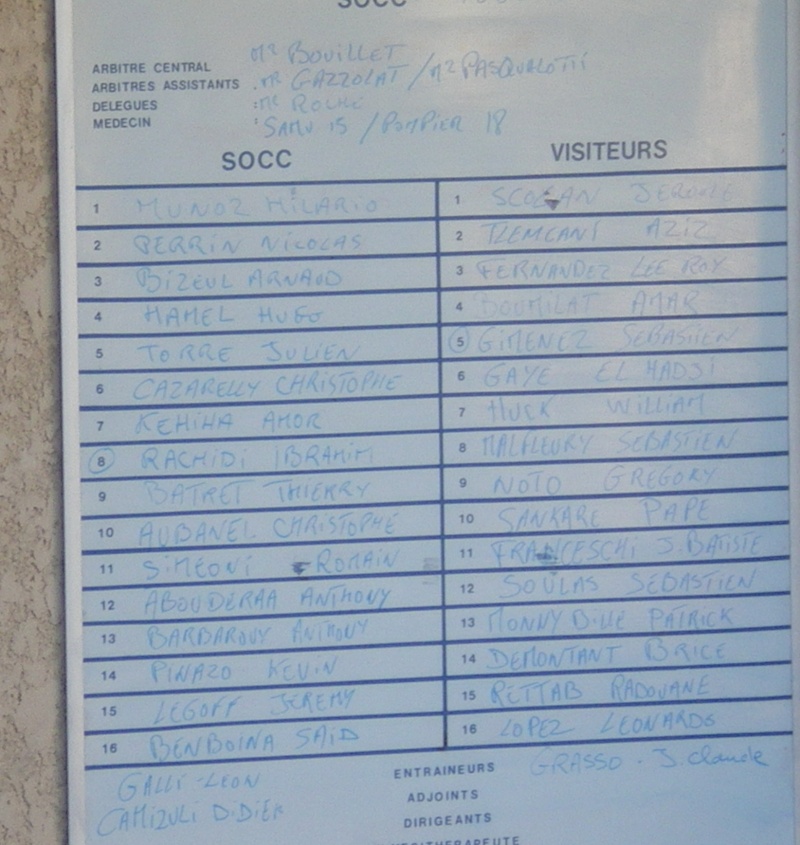 SOCC
ARBITRE CENTRAL Mr BOUILLET
ARBITRES ASSISTANTS . Mr GAZZOLAT / Mr PASQUALOTTI
DELEGUES : Mr
MEDECIN : SAMU 15 / POMPIER 18
SOCC VISITEURS
1 MUNOZ HILARIO 1 JEROME
2 PERRIN NICOLAS 2 TLEMCANI AZIZ
3 BIZEUL ARNAUD 3 FERNANDEZ LEE ROY
4 HAMEL HUGO 4 BOUMILAT AMAR
5 TORRE JULIEN 5 GIMENEZ SEBASTIEN
6 CAZARELLY CHRISTOPHE 6 GAYE EL HADJI
7 KEHIHA AMOR 7 HUCK WILLIAM
8 RACHIDI IBRAHIM 8 MALFLEURY SEBASTIEN
9 BATRET THIERRY 9 NOTO GREGORY
10 AUBANEL CHRISTOPHE 10 SANKARE PAPE
11 SIMEONI ROMAIN 11 FRANCESCHI J.BATISTE
12 ABOUDERAA ANTHONY 12 SOULAS SEBASTIEN
13 BARBAROUX ANTHONY 13 PATRICK
14 PINAZO KEVIN 14 DEMONTANT BRICE
15 LEGOFF JEREMY 15 RETTAB RADOUANE
16 BENBOINA SAID 16 LOPEZ LEONARDO
GALLI - LEON ENTRAINEURS GRASSO - J. Claude
CAMIZULI DIDIER ADJOINTS
DIRIGEANTS